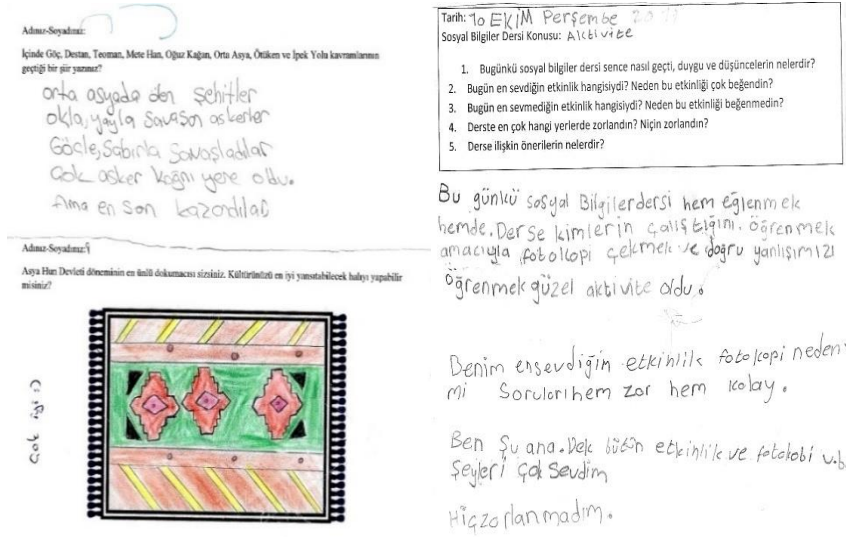 Adınız-Soyadınız:
İçinde Göç, Destan, Teoman, Mete Han, Oğuz Kağan, Orta Asya, Ötüken ve İpek Yolu kavramlarının
geçtiği bir şiir yazınız?
orta asyada den şehitler
okla, yayla savaşon askerler
Göçle, sabırla savaşladılar
Çok asker kağnı yere oldu.
Ama en son kazandılar
Adınız-Soyadınız:
Asya Hun Devleti döneminin en ünlü dokumacısı sizsiniz. Kültürünüzü en iyi yansıtabilecek halıyı yapabilir
misiniz?
Çok iyi :)
Tarih: 10 EKİM Perşembe
Sosyal Bilgiler Dersi Konusu: Aktivite
1. Bugünkü sosyal bilgiler dersi sence nasıl geçti, duygu ve düşüncelerin nelerdir?
2. Bugün en sevdiğin etkinlik hangisiydi? Neden bu etkinliği çok beğendin?
3. Bugün en sevmediğin etkinlik hangisiydi? Neden bu etkinliği beğenmedin?
4. Derste en çok hangi yerlerde zorlandın? Niçin zorlandın?
5. Derse ilişkin önerilerin nelerdir?
Bu günkü sosyal Bilgilerdersi hem eğlenmek
hemde. Derse kimlerin çalıştığını. Öğrenmek
amacıyla fotolkopi çekmek ve doğru yanlışımızı
Öğrenmek güzel aktivite oldu.
Benim ensevdiğin etkinlik fotokopi neden
mi Soruları hem zor hem kolay.
Ben Şu ana. Dek bütün etkinlik ve fotokobi v.b
Şeyleri Çok Sevdim
Hiçzorlanmadım.